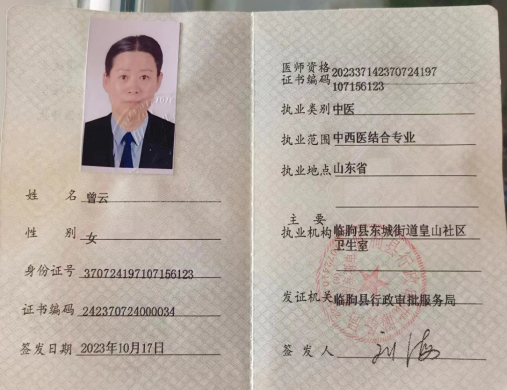 姓 名 曾云
性 别 女
身份证号 370724197107156123
证书编码 242370724000034
签发日期 2023年10月17日
医师资格
证书编码 202337142370724197
107156123
执业类别 中医
执业范围 中西医结合专业
执业地点 山东省
主 要
执业机构 临朐县东城街道皇山社区
卫生室
发证机关 临朐县行政审批服务局
签 发 人